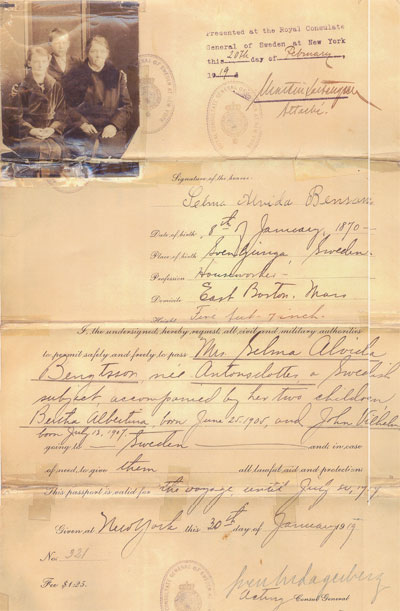 Presented at the Royal Consulate
General of Sweden at New York
this 20th day of February
1919
Attaché.
Signature of the bearer
Selma Alvida Benson
Date of birth 8th of January, 1870—
Place of birth Sweden.
Profession Houseworker—
Domicile East Boston, Mass
Height Five feet 7 inch.
I, the undersigned, hereby request all civil and military authorities
to permit safely and freely to pass Mrs Selma Alvida
Bengtsson, née a Swedish
subject accompanied by her two children
Bertha Albertina, born June 25, 1905, and John Vilhelm
born July 13, 1907
going to Sweden and in case
of need, to give them all lawful aid and protection.
This passport is valid for the voyage until July 30, 1919
Given at New York this 30th day of January 1919
No. 321
Fee $1.25.
Acting Consul General